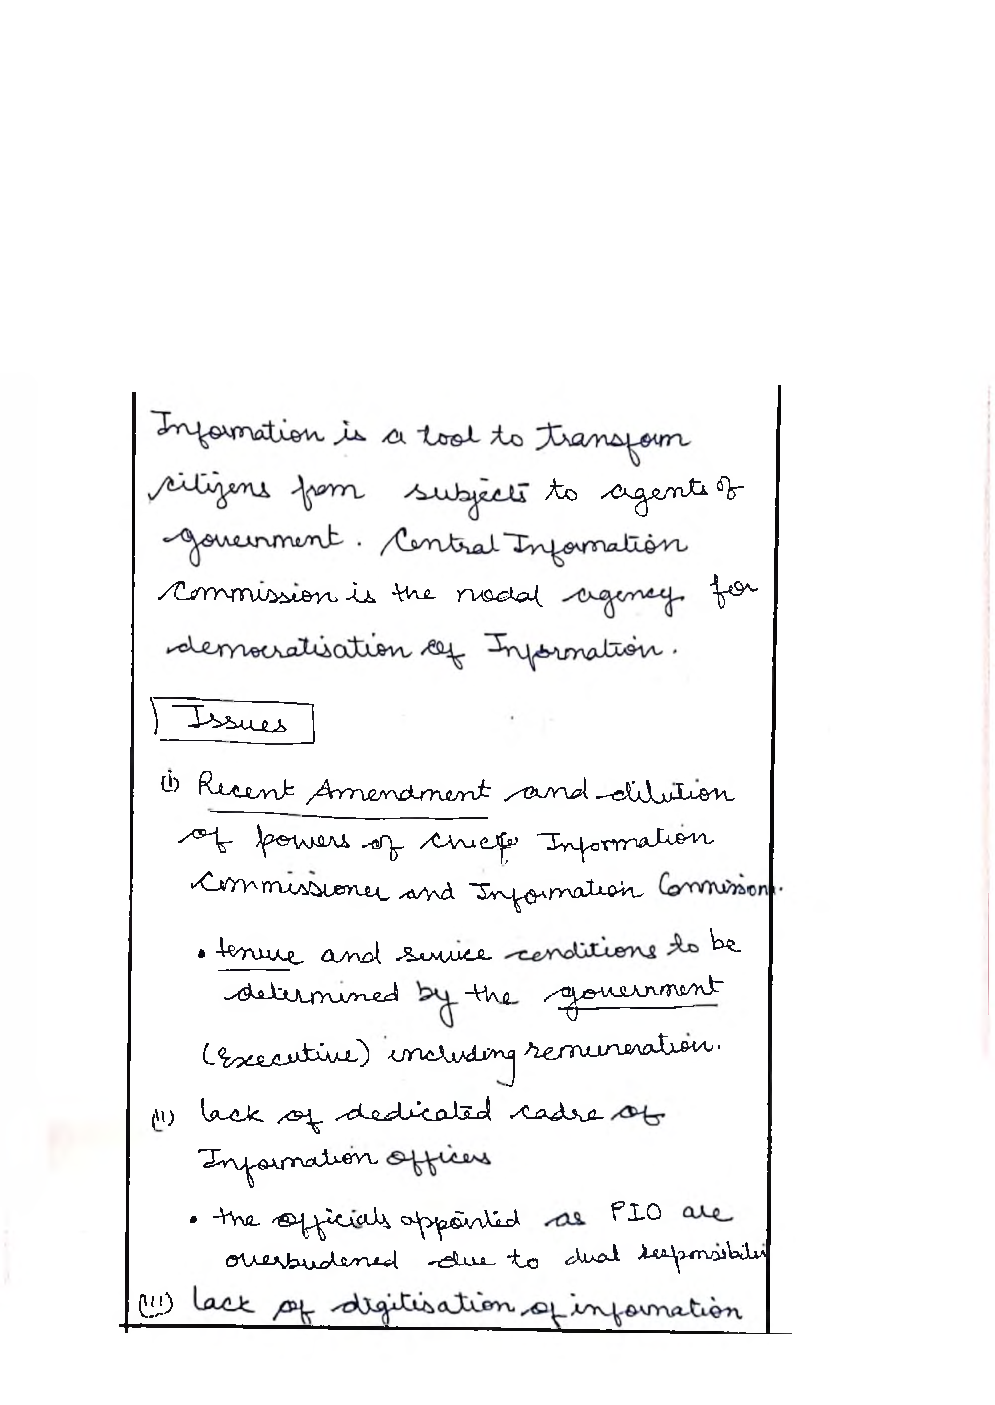 Information is a tool to transform
citizens from subjects to agents of
government. Central Information
Commission is the nodal agency for
democratisation of Information.
Issues
(i) Recent Amendment and dilution
of powers of chief Information
Commissioner and Information Commission.
• tenure and service conditions to be
determined by the government
(Executive) including remuneration.
(ii) lack of dedicated cadre of
Information officers
• the officials appointed as PIO are
overbudened due to dual responsibiliti
(iii) lack of digitisation of information